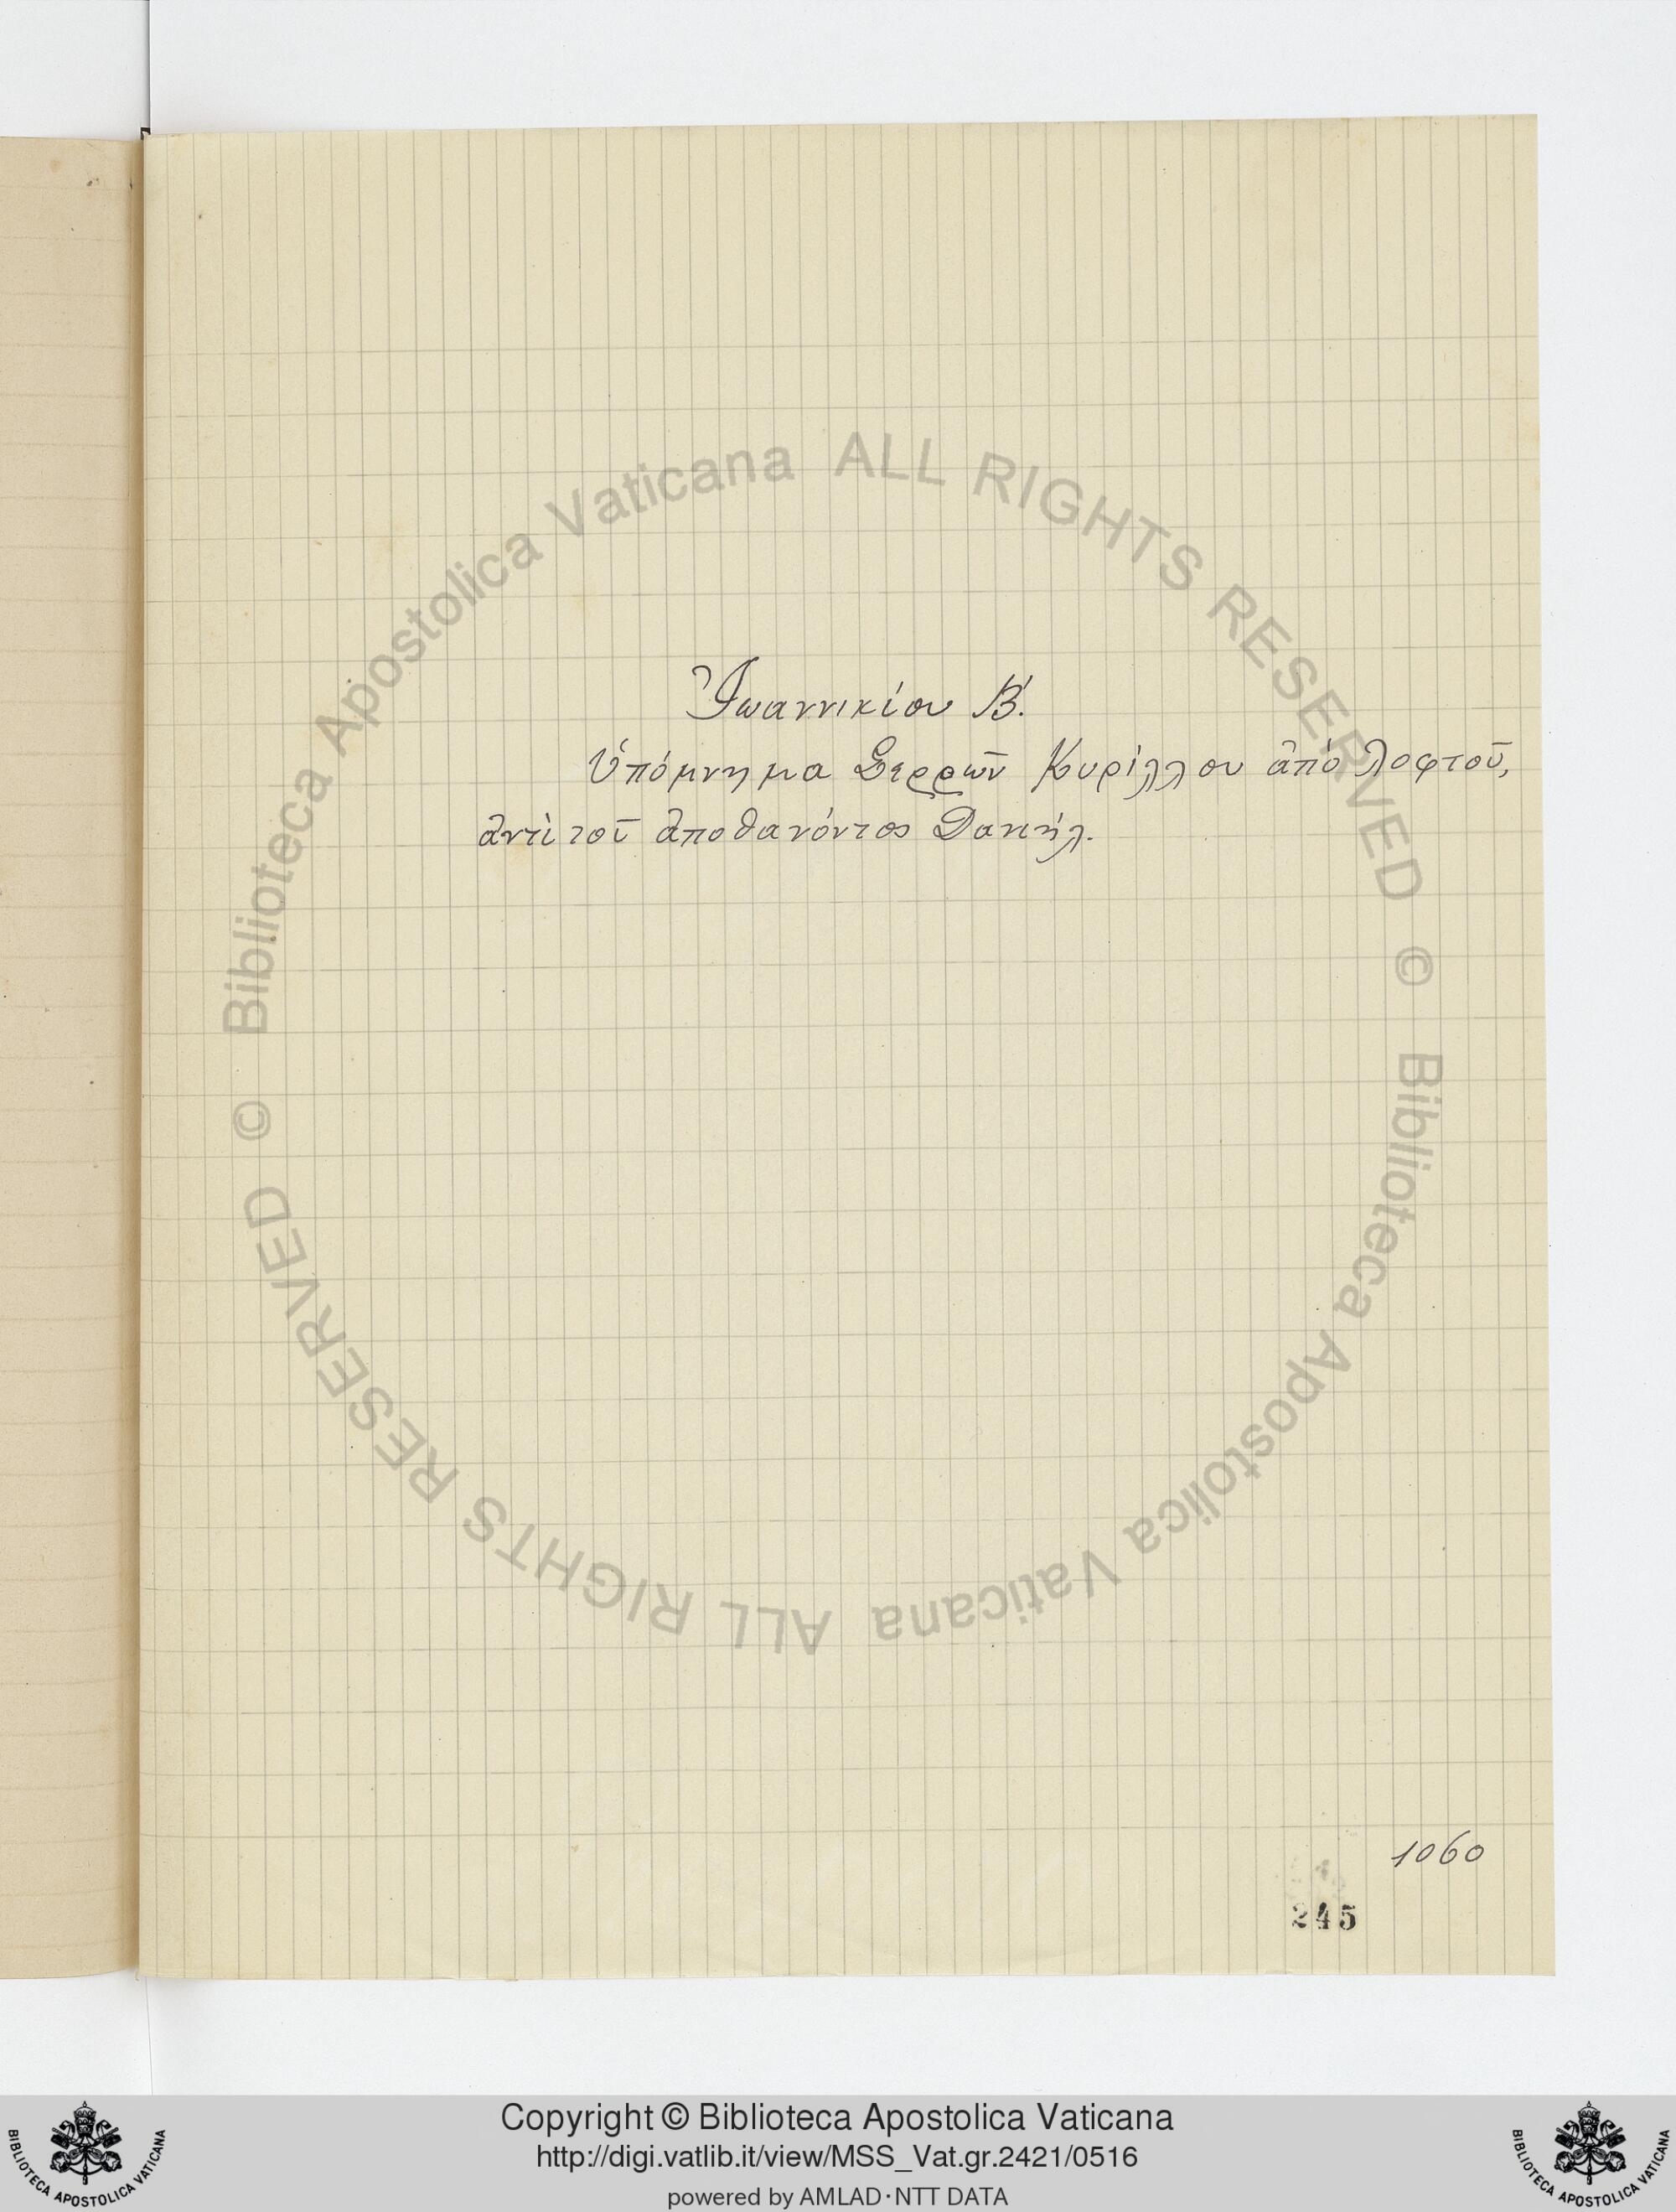 Ἰωαννικίου Β΄.
Ὑπόμνημα Σερρῶν Κυρίλλου ἀπὸ Λοφτοῦ,
ἀντὶ τοῦ ἀποθανόντος Δανιήλ.
1060
245
© Biblioteca Apostolica Vaticana ALL RIGHTS RESERVED
© Biblioteca Apostolica Vaticana ALL RIGHTS RESERVED
Copyright © Biblioteca Apostolica Vaticana
http://digi.vatlib.it/view/MSS_Vat.gr.2421/0516
powered by AMLAD·NTT DATA
BIBLIOTECA APOSTOLICA VATICANA
BIBLIOTECA APOSTOLICA VATICANA